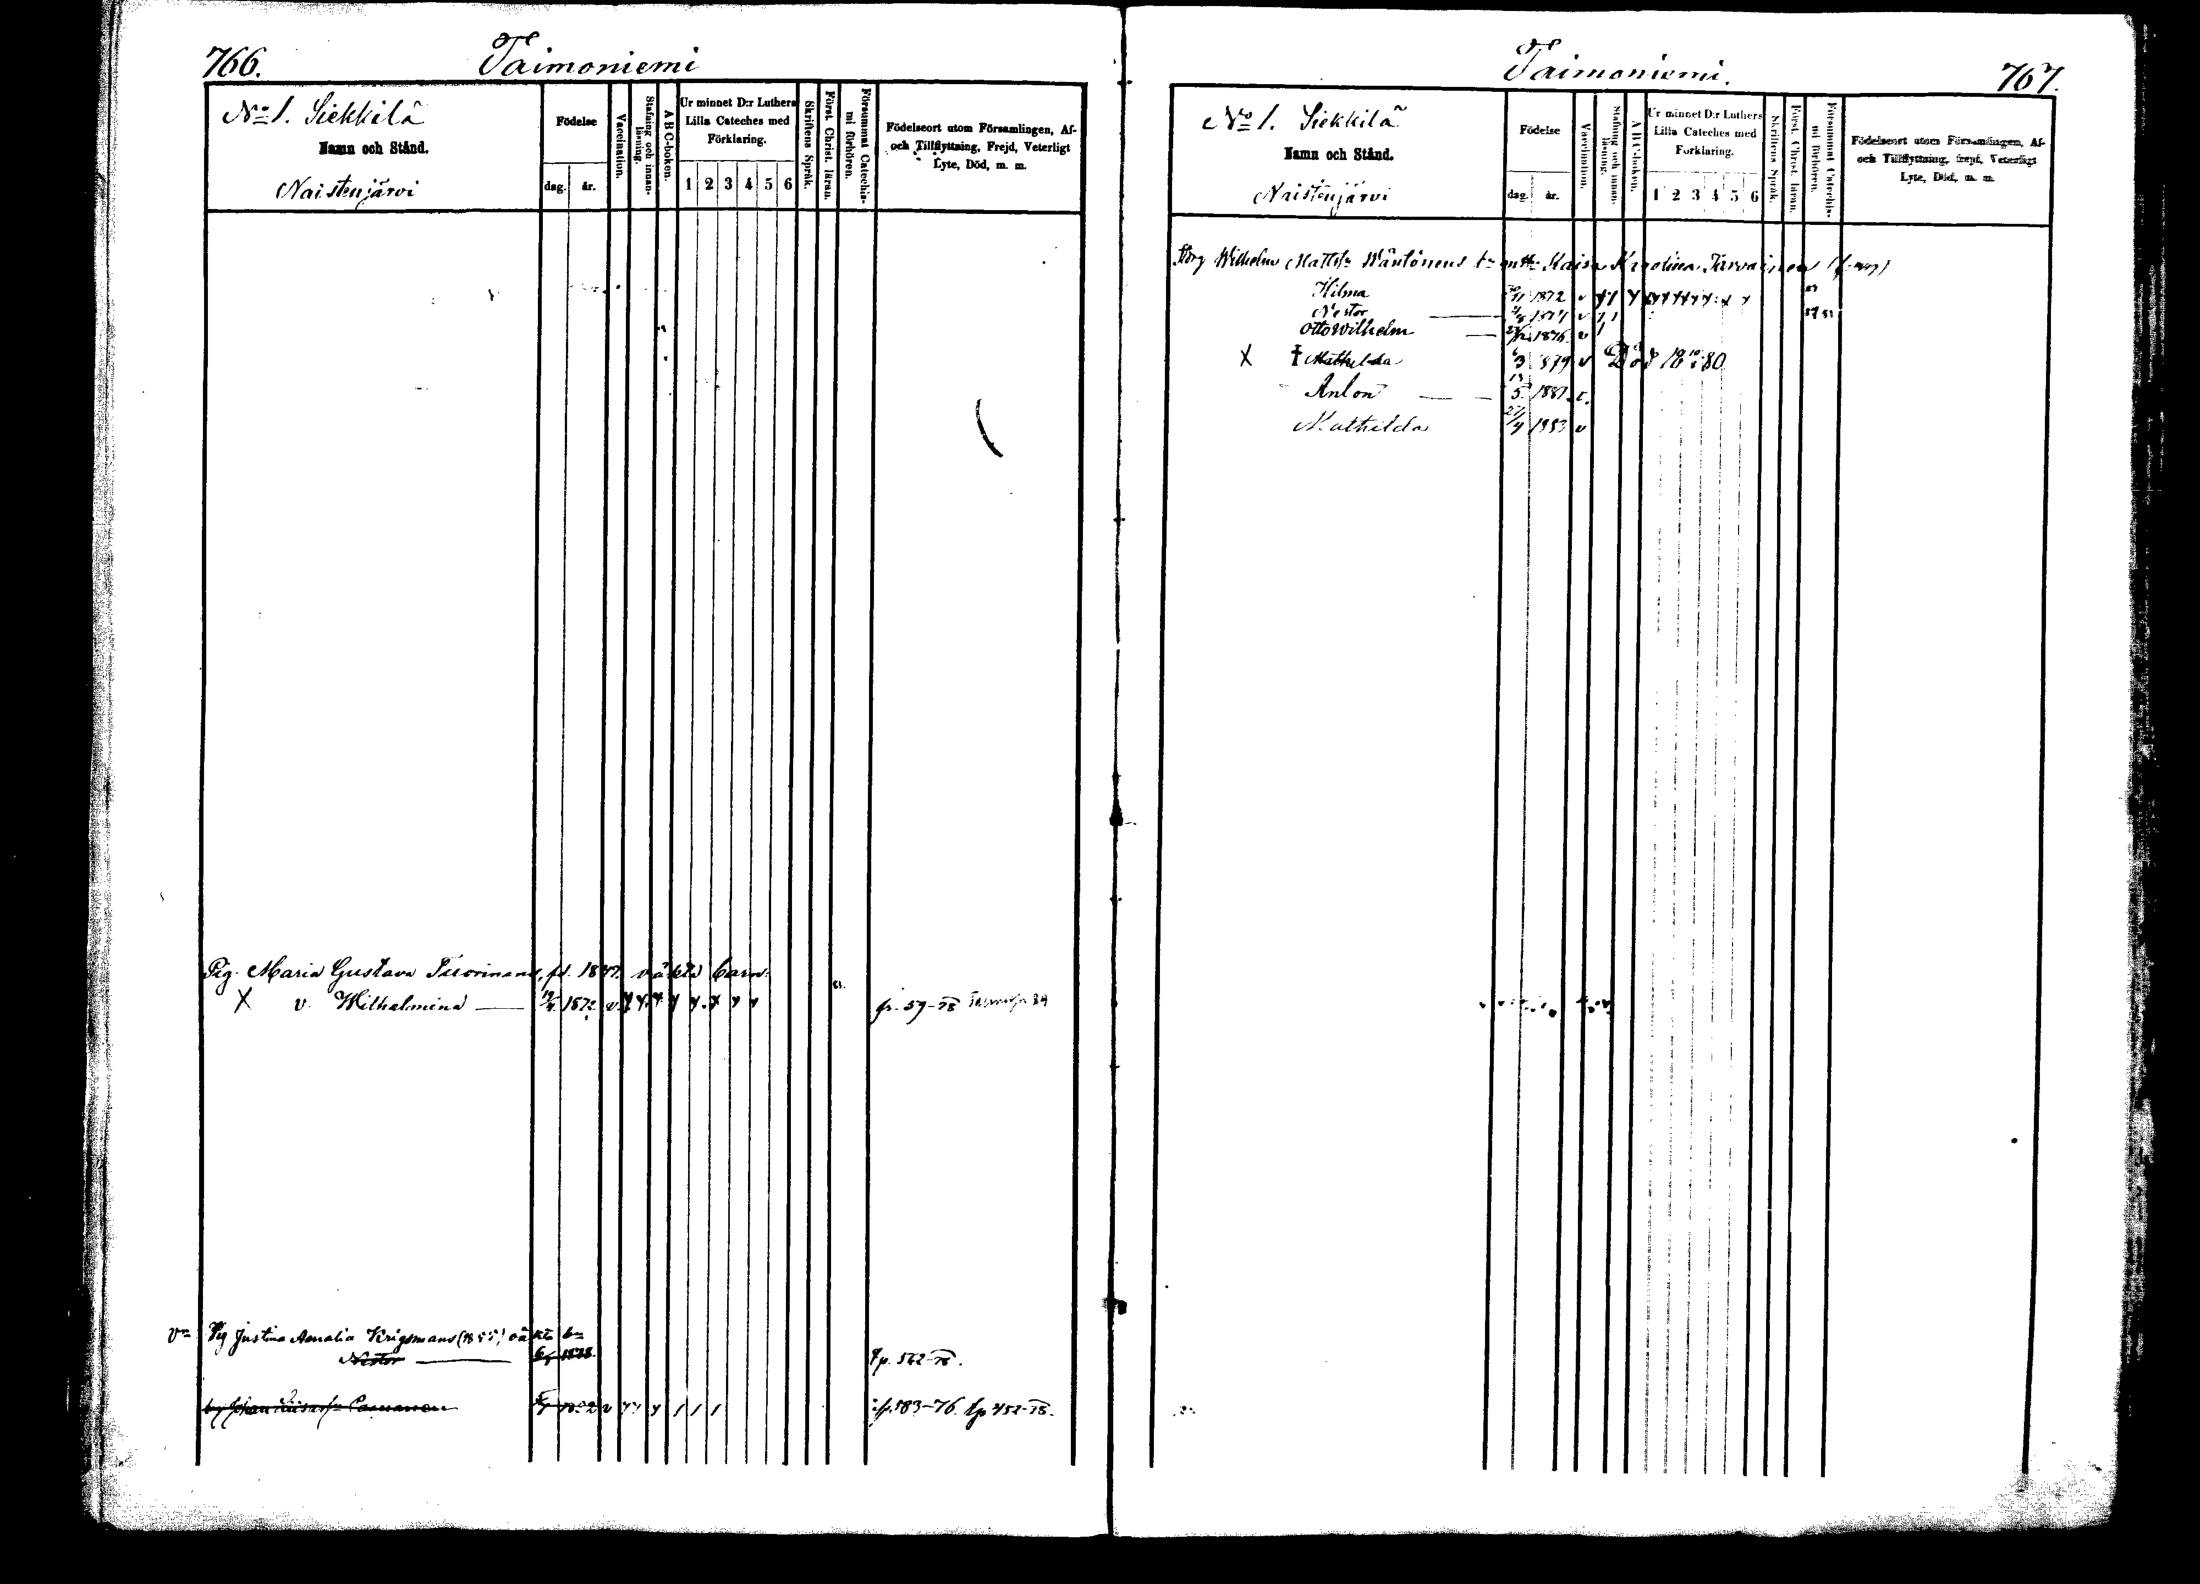 766. Taimoniemi
No 1. Siekkilä
Namn och Stånd.
Naistenjärvi
Födelse
dag. år.
Vaccination.
Stafning och innan-läsning.
A B C-boken.
Ur minnet D:r Luthers
Lilla Cateches med
Förklaring.
1 2 3 4 5 6
Skriftens Språk.
Först. Christ. läran.
Försummat Catechis-mi förhören.
Födelseort utom Församlingen, Af-
och Tillflyttning, Frejd, Veterligt
Lyte, Död, m. m.
Pig. Maria Gustava fd. 1847. oäkta barn
X v. Wilhelmina 1872 v
fr. 59-78
Pig Justina Amalia Krigsmans (1855) oäkta b
Nestor 1878
fp. 562-78.
Johan
583-76. fp 452-78.
Taimoniemi. 767.
No 1. Siekkilä
Namn och Stånd.
Naistenjärvi
Födelse
dag. år.
Vaccination.
Stafning och innan-läsning.
A B C-boken.
Ur minnet D:r Luthers
Lilla Cateches med
Förklaring.
1 2 3 4 5 6
Skriftens Språk.
Först. Christ. läran.
Försummat Catechis-mi förhören.
Födelseort utom Församlingen, Af-
och Tillflyttning, frejd, Veterligt
Lyte, Död, m. m.
Wilhelm Mattss Wäntönens b m Kaisa Karolina Tarvainen
Hilma 30/11 1872 v
Nestor 1874 v
Otto Wilhelm 1876 v
X † Mathilda 6/3 1879 v Död 18 10/4 80
Anton 13/5 1881 v.
Mathilda 27/4 1883 v